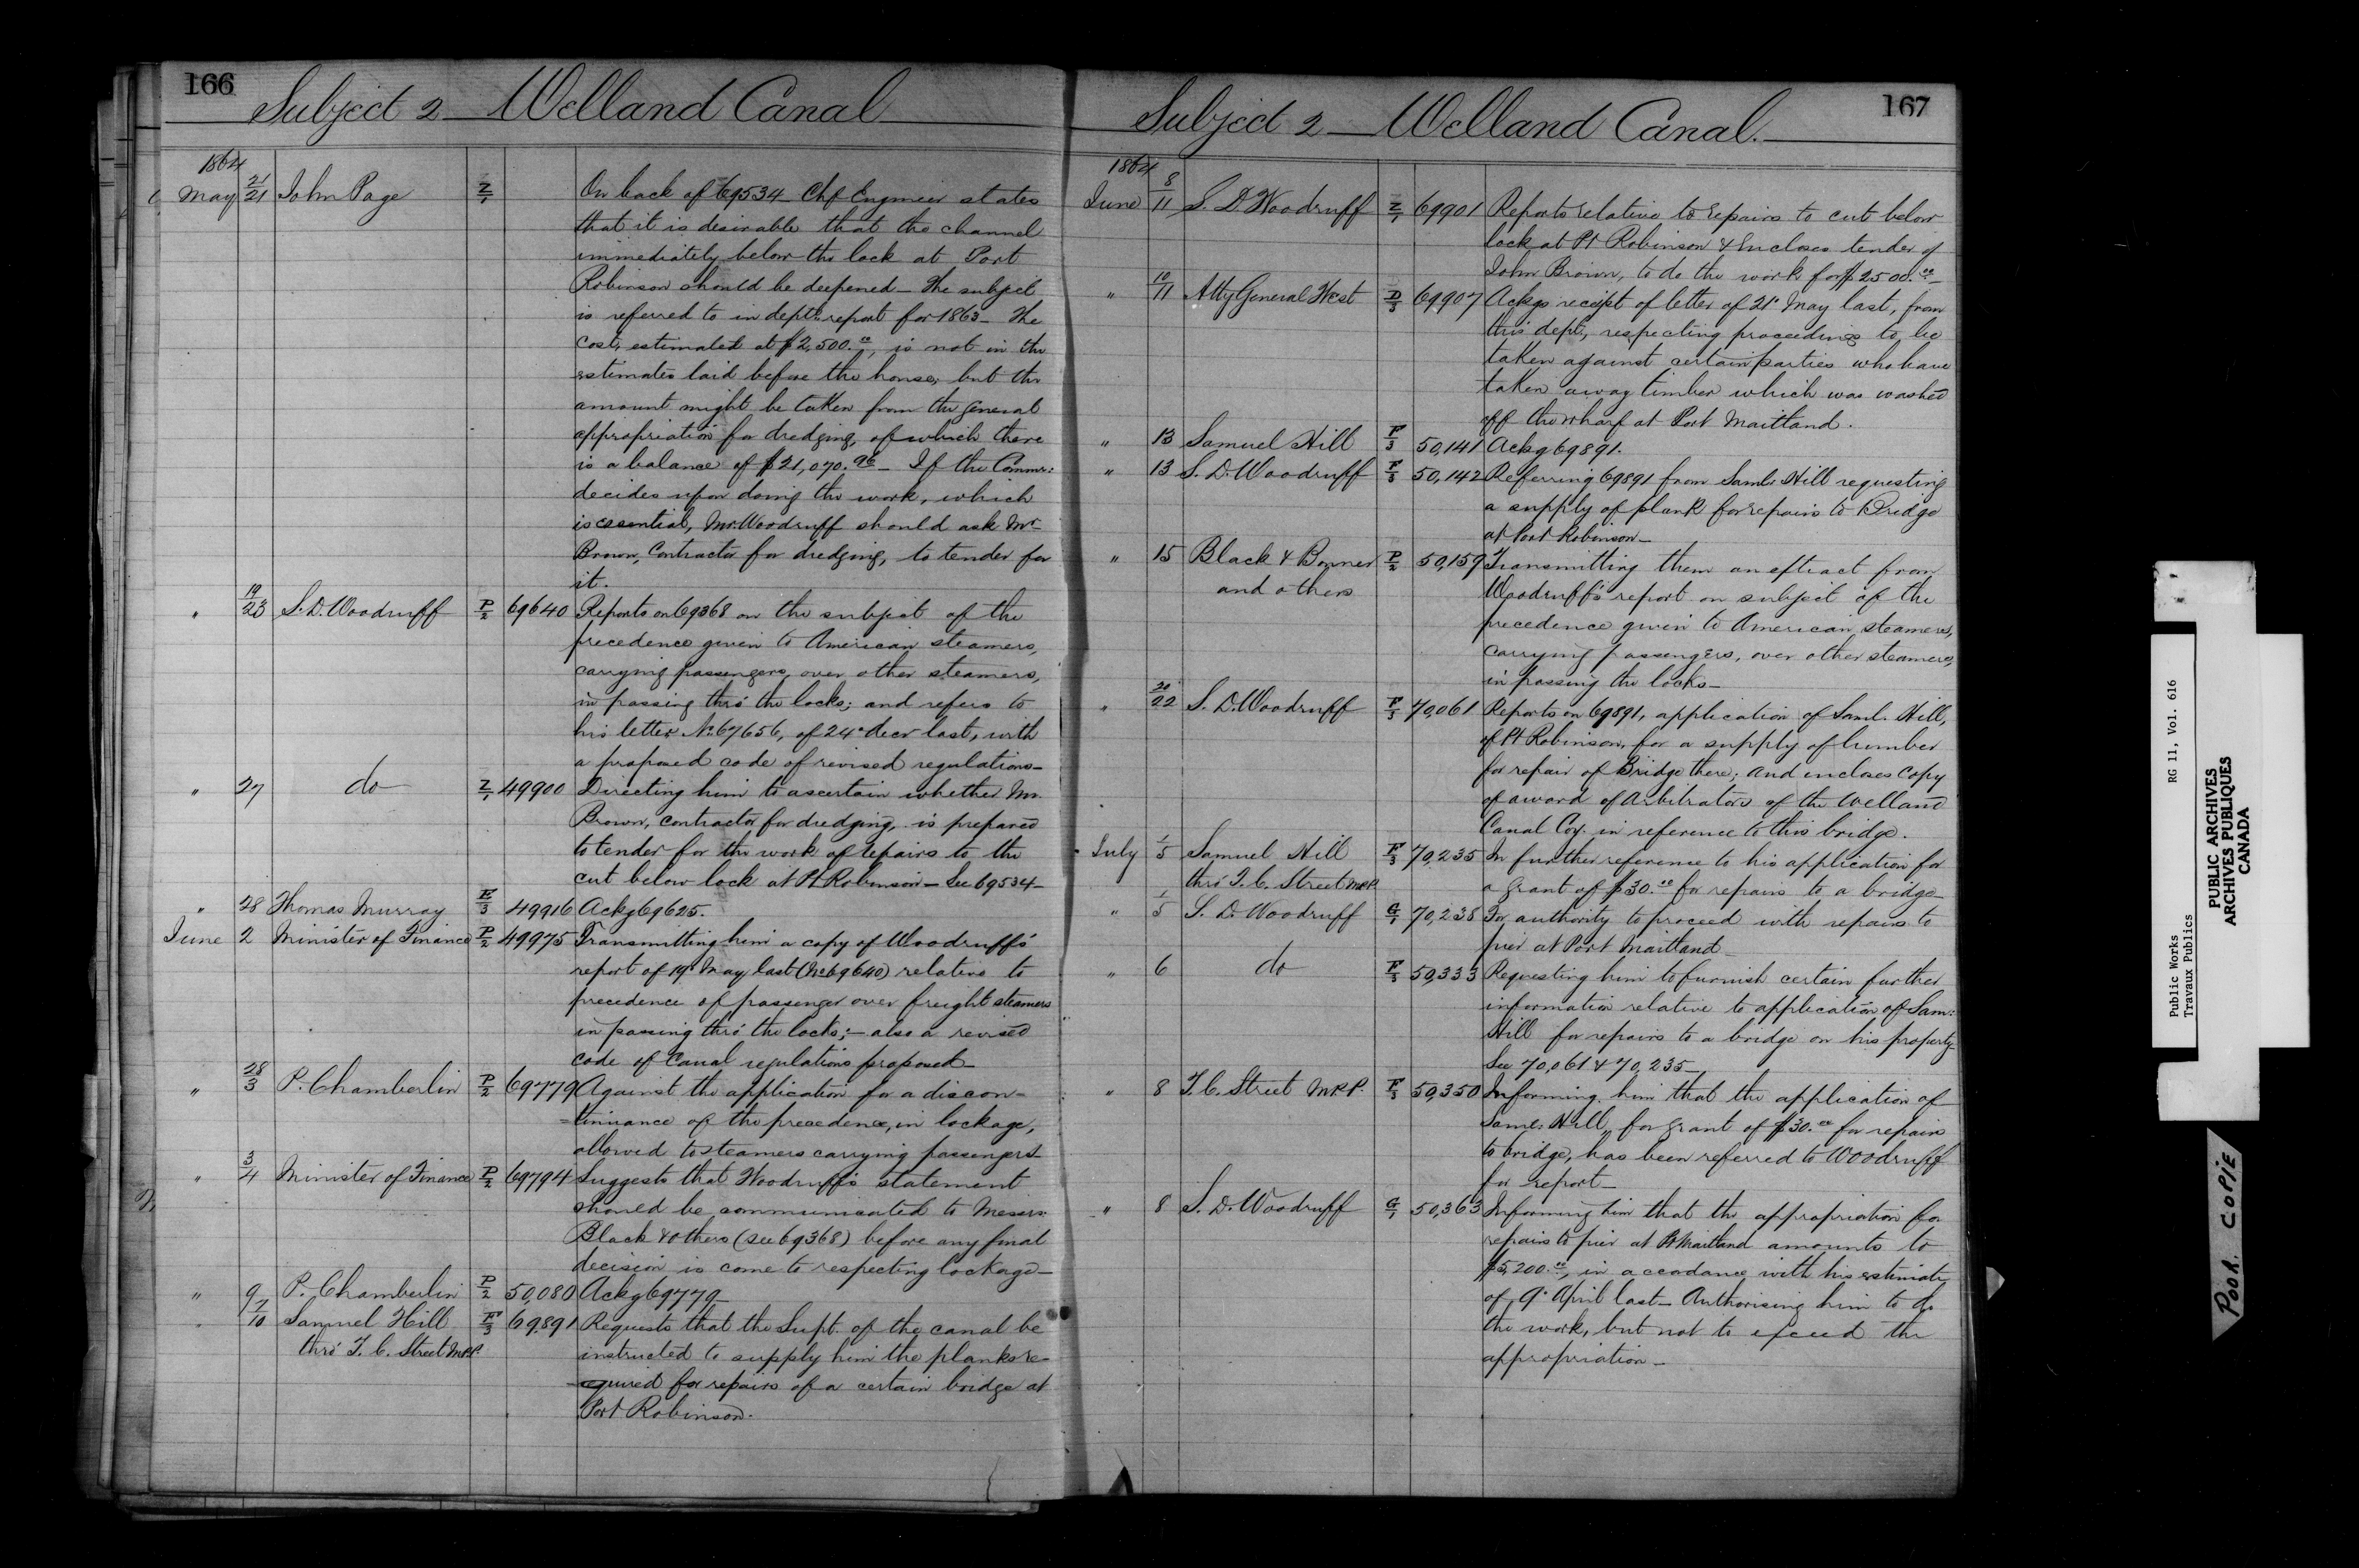 166
Subject 2 — Welland Canal
1864
May 21/21 John Page Z/1 On back of 69534 — Chf Engineer states
that it is desirable that the channel
immediately below the lock at Port
Robinson should be deepened — The subject
is referred to in dept's report for 1863 — The
cost, estimated at $2,500.00, is not in the
estimates laid before the house, but the
amount might be taken from the general
appropriation for dredging, of which there
is a balance of $21,070.96 — If the Commr:
decides upon doing the work, which
is essential, Mr Woodruff should ask Mr
Brown, Contractor for dredging, to tender for
it.
" 19/23 S. D. Woodruff P/2 69640 Reports on 69368 on the subject of the
precedence given to American steamers,
carrying passengers, over other steamers,
in passing thro' the locks; and refers to
his letter No 67656, of 24" decr last, with
a proposed code of revised regulations —
" 27 do Z/1 49900 Directing him to ascertain whether Mr.
Brown, contractor for dredging, is prepared
to tender for the work of repairs to the
cut below lock at Pt Robinson — See 69534 —
" 28 Thomas Murray E/3 49916 Ackg 69625.
June 2 Minister of Finance P/2 49975 Transmitting him a copy of Woodruff's
report of 19" May last (No 69640) relative to
precedence of passenger over freight steamers
in passing thro' the locks; — also a revised
code of Canal regulations proposed —
" 28/3 P. Chamberlin P/2 69779 Against the application for a discon-
=tinuance of the precedence, in lockage,
allowed to steamers carrying passengers —
" 3/4 Minister of Finance P/2 69794 Suggests that Woodruff's statement
should be communicated to Messrs:
Black & others (see 69368) before any final
decision is come to respecting lockage —
" 9 P. Chamberlin P/2 50,080 Ackg 69779 —
" 7/10 Samuel Hill F/3 69891 Requests that the Supt. of the canal be
thro' T. C. Street M.P.P. instructed to supply him the planks re-
-quired for repairs of a certain bridge at
Port Robinson.
167
Subject 2 — Welland Canal.
1864
June 8/11 S. D. Woodruff Z/1 69901 Reports relative to repairs to cut below
lock at Pt Robinson & Encloses tender of
John Brown, to do the work for $2500.00 —
" 10/11 Atty General West D/3 69907 Ackgs receipt of letter of 21st May last, from
this dept, respecting proceedings to be
taken against certain parties who have
taken away timber which was washed
off the wharf at Port Maitland.
" 13 Samuel Hill F/3 50,141 Ackg 69891.
" 13 S. D. Woodruff F/3 50,142 Referring 69891 from Saml. Hill requesting
a supply of plank for repairs to Bridge
at Port Robinson —
" 15 Black & Bonner P/2 50,159 Transmitting them an extract from
and others Woodruff's report on subject of the
precedence given to American steamers,
carrying passengers, over other steamers,
in passing the locks —
" 20/22 S. D. Woodruff F/3 70,061 Reports on 69891, application of Saml. Hill,
of Pt Robinson, for a supply of lumber
for repair of Bridge there; and encloses copy
of award of Arbitrators of the Welland
Canal Coy. in reference to this bridge.
July 1/5 Samuel Hill F/3 70,235 In further reference to his application for
thro' T. C. Street M.P.P. a grant of $30.00 for repairs to a bridge —
" 1/5 S. D. Woodruff G/1 70,238 For authority to proceed with repairs to
pier at Port Maitland —
" 6 do F/3 50,333 Requesting him to furnish certain further
information relative to application of Sam:
Hill for repairs to a bridge on his property —
See 70,061 & 70,235 —
" 8 T. C. Street M.P.P. F/3 50,350 Informing him that the application of
Saml. Hill, for grant of $30.00 for repairs
to bridge, has been referred to Woodruff
for report —
" 8 S. D. Woodruff G/1 50,363 Informing him that the appropriation for
repairs to pier at Pt Maitland amounts to
$5,200.00, in accordance with his estimate
of 9" April last — Authorising him to do
the work, but not to exceed the
appropriation —
Public Works RG 11, Vol. 616
Travaux Publics
PUBLIC ARCHIVES
ARCHIVES PUBLIQUES
CANADA
POOR COPIE